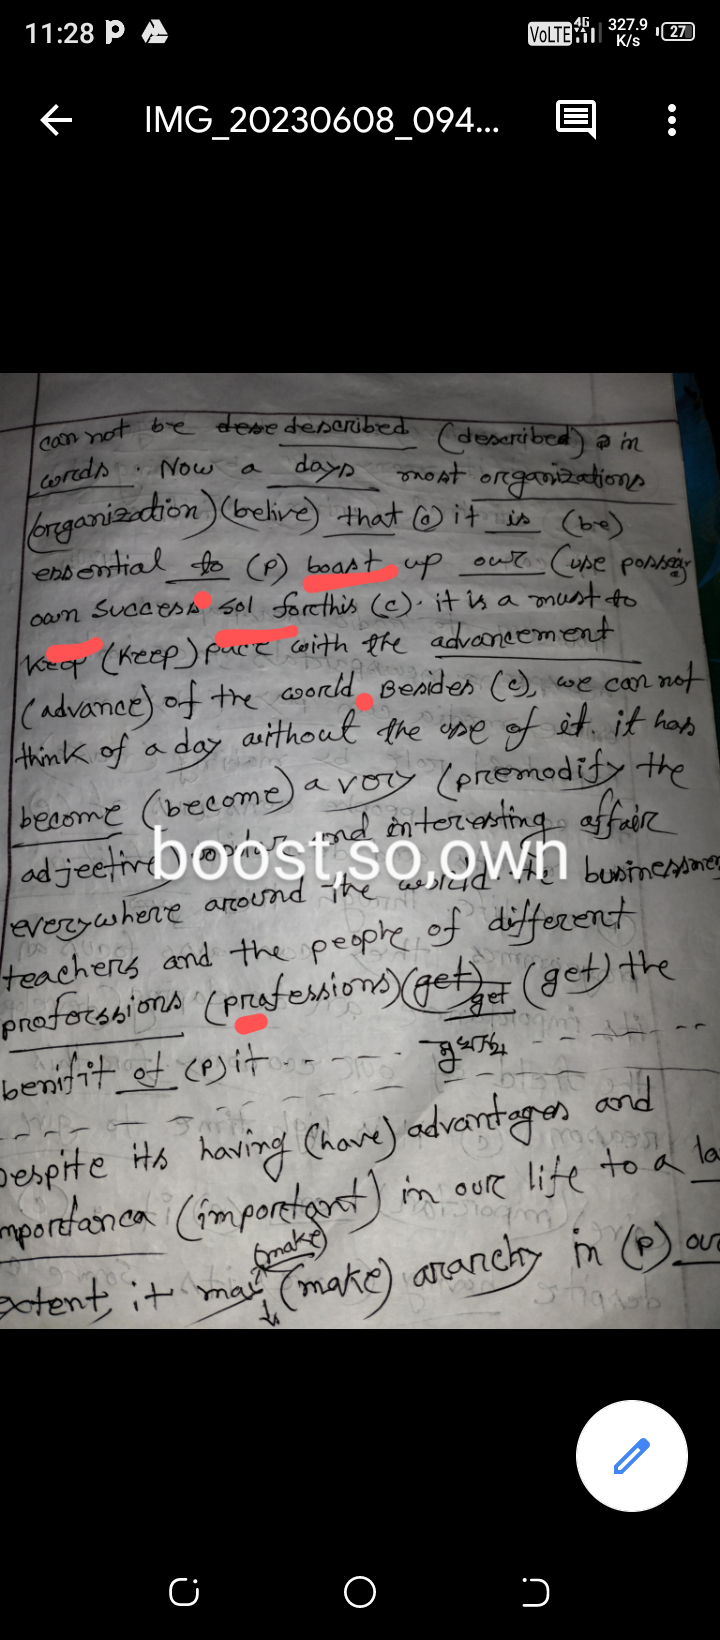 11:28
VoLTE 4G 327.9 K/s 27
IMG_20230608_094...
can not be dese described (described) in
words. Now a days most organizations
(organization) (belive) that (c) it is (be)
essential to (P) boast up our (use
own success sol forthis (c). it is a must to
keep (keep) pace with the advancement
(advance) of the world Besides (c), we can not
think of a day without the use of it. it has
become (become) a vory (premodify the
adjective) and interesting affair
boost,so,own
everywhere around the world. the
teachers and the people of different
proforssions (prafessions) (get) get (get) the
benifit of (P) it - - - - -
Despite its having (have) advantages and
importanca (important) in our life to a la
extent, it mar (make) (make) ararchy in (P) our